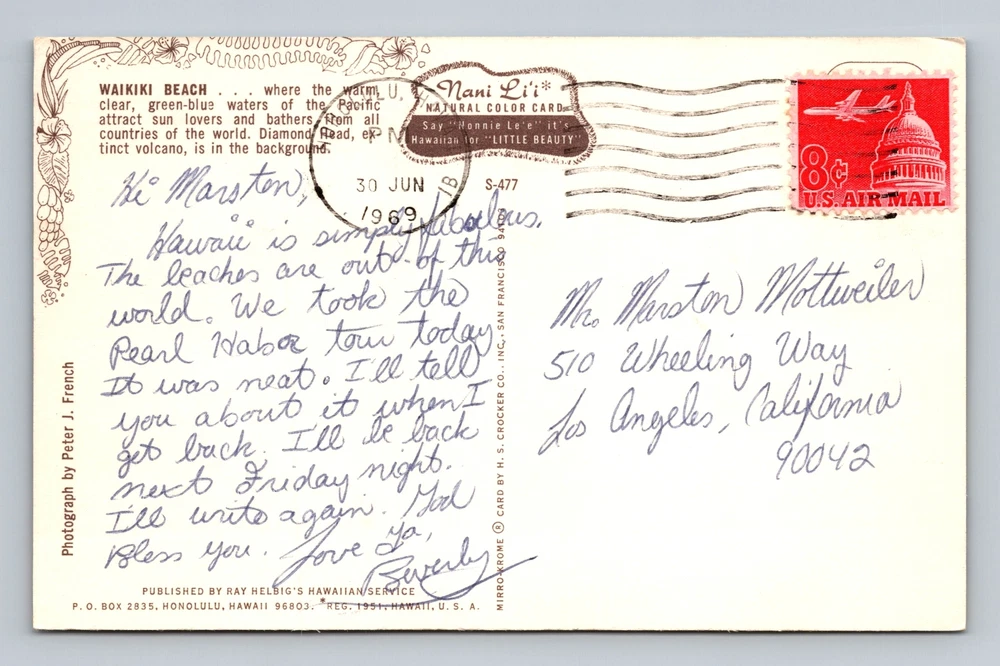 WAIKIKI BEACH . . . where the warm,
clear, green-blue waters of the Pacific
attract sun lovers and bathers from all
countries of the world. Diamond Head, ex-
tinct volcano, is in the background.
Nani Li'i*
NATURAL COLOR CARD
Say "Nonnie Le'e" it's
Hawaiian for "LITTLE BEAUTY"
S-477
PM
30 JUN
1969
8¢
U.S. AIR MAIL
Hi Marston,
Hawaii is simply fabulous.
The beaches are out of this
world. We took the
Pearl Habor tour today
It was neat. I'll tell
you about it when I
get back. I'll be back
next Friday night.
I'll write again. God
Bless you. Love Ya,
Beverly
Mr. Marston Mottweiler
510 Wheeling Way
Los Angeles, California
90042
Photograph by Peter J. French
MIRRO-KROME ® CARD BY H. S. CROCKER CO., INC., SAN FRANCISCO
PUBLISHED BY RAY HELBIG'S HAWAIIAN SERVICE
P. O. BOX 2835, HONOLULU, HAWAII 96803. *REG. 1951, HAWAII, U. S. A.